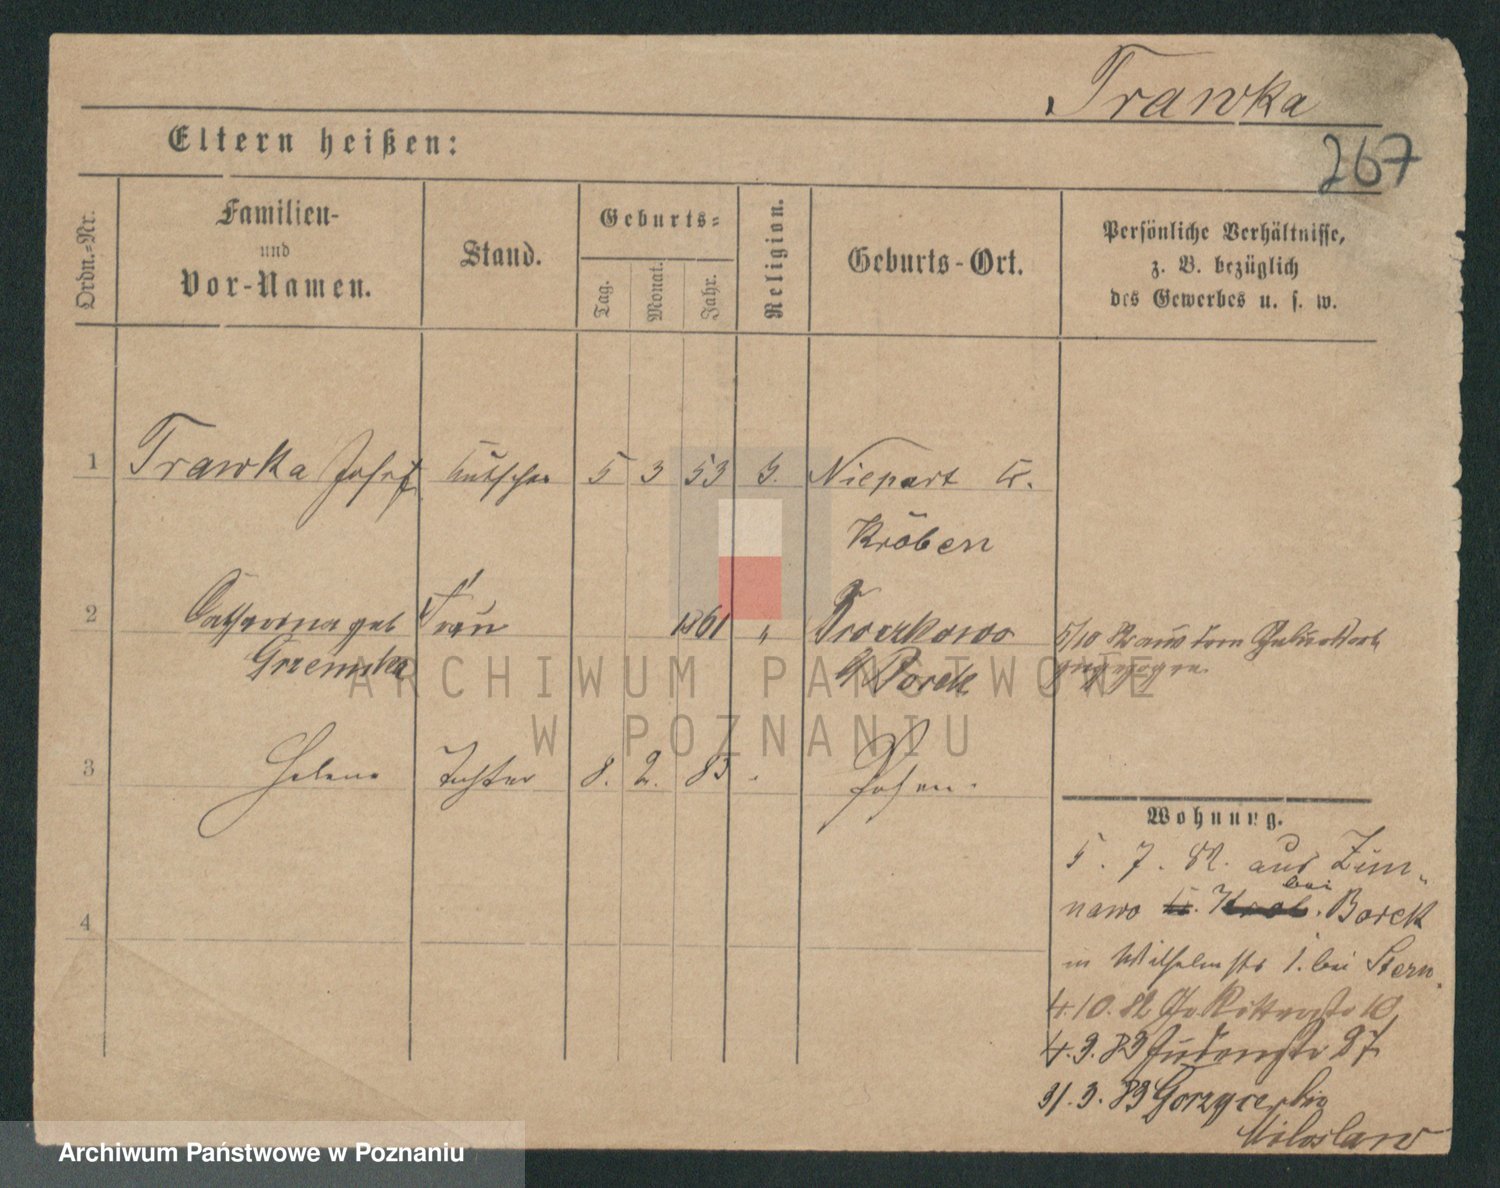 Trawka
267
Eltern heißen:
Ordn.-Nr.
Familien-
und
Vor-Namen.
Stand.
Geburts-
Tag.
Monat.
Jahr.
Religion.
Geburts-Ort.
Persönliche Verhältnisse,
z. B. bezüglich
des Gewerbes u. s. w.
1 Trawka Josef Kutscher 5 3 53 Niepart
Kröben
2 Catharina geb Frau 1861 " 5/10 82 aus dem Geburtsort
Grzemska Borek zugezogen.
3 Helene Tochter 8. 2. 83 Posen.
4
Wohnung.
5. 7. 82. aus Zim-
nawo bei Borek
in Wilhelmstr 1. bei Stern.
4.10.82 Gr Ritterstr 10
4.3.83 Judenstr 27
31.3.83 bei
Miloslaw
ARCHIWUM PAŃSTWOWE
W POZNANIU
Archiwum Państwowe w Poznaniu